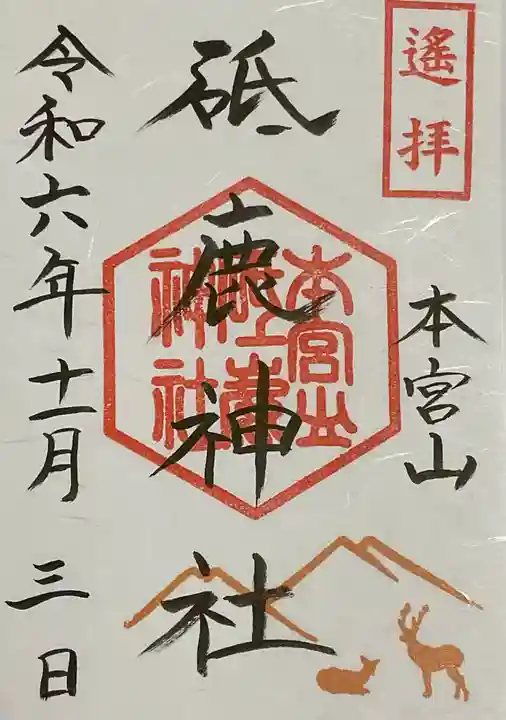 遙拝
本宮山
砥鹿神社
本宮山
神社
令和六年十一月三日